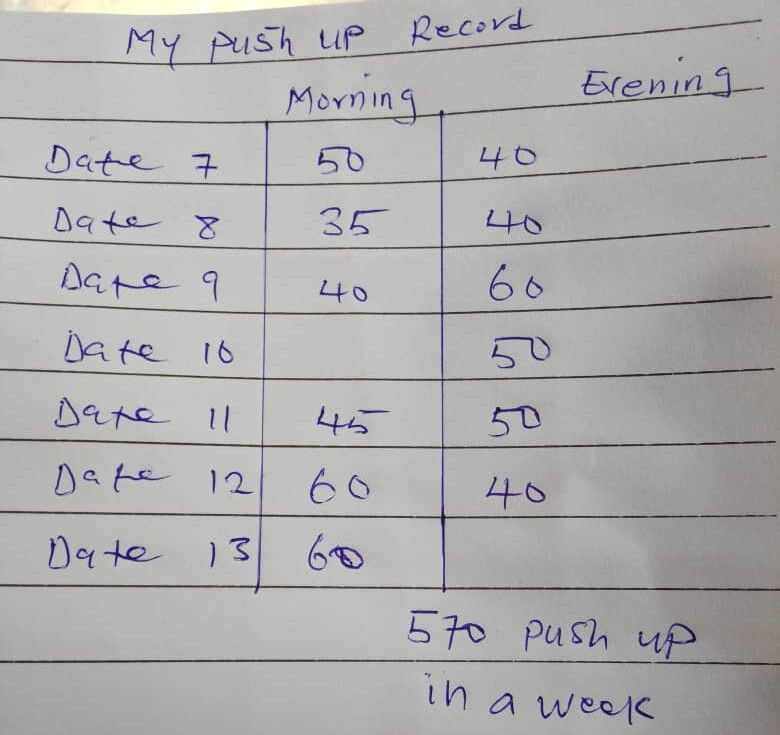 My push up Record
Morning Evening
Date 7 50 40
Date 8 35 40
Date 9 40 60
Date 10 50
Date 11 45 50
Date 12 60 40
Date 13 60
570 push up
in a week